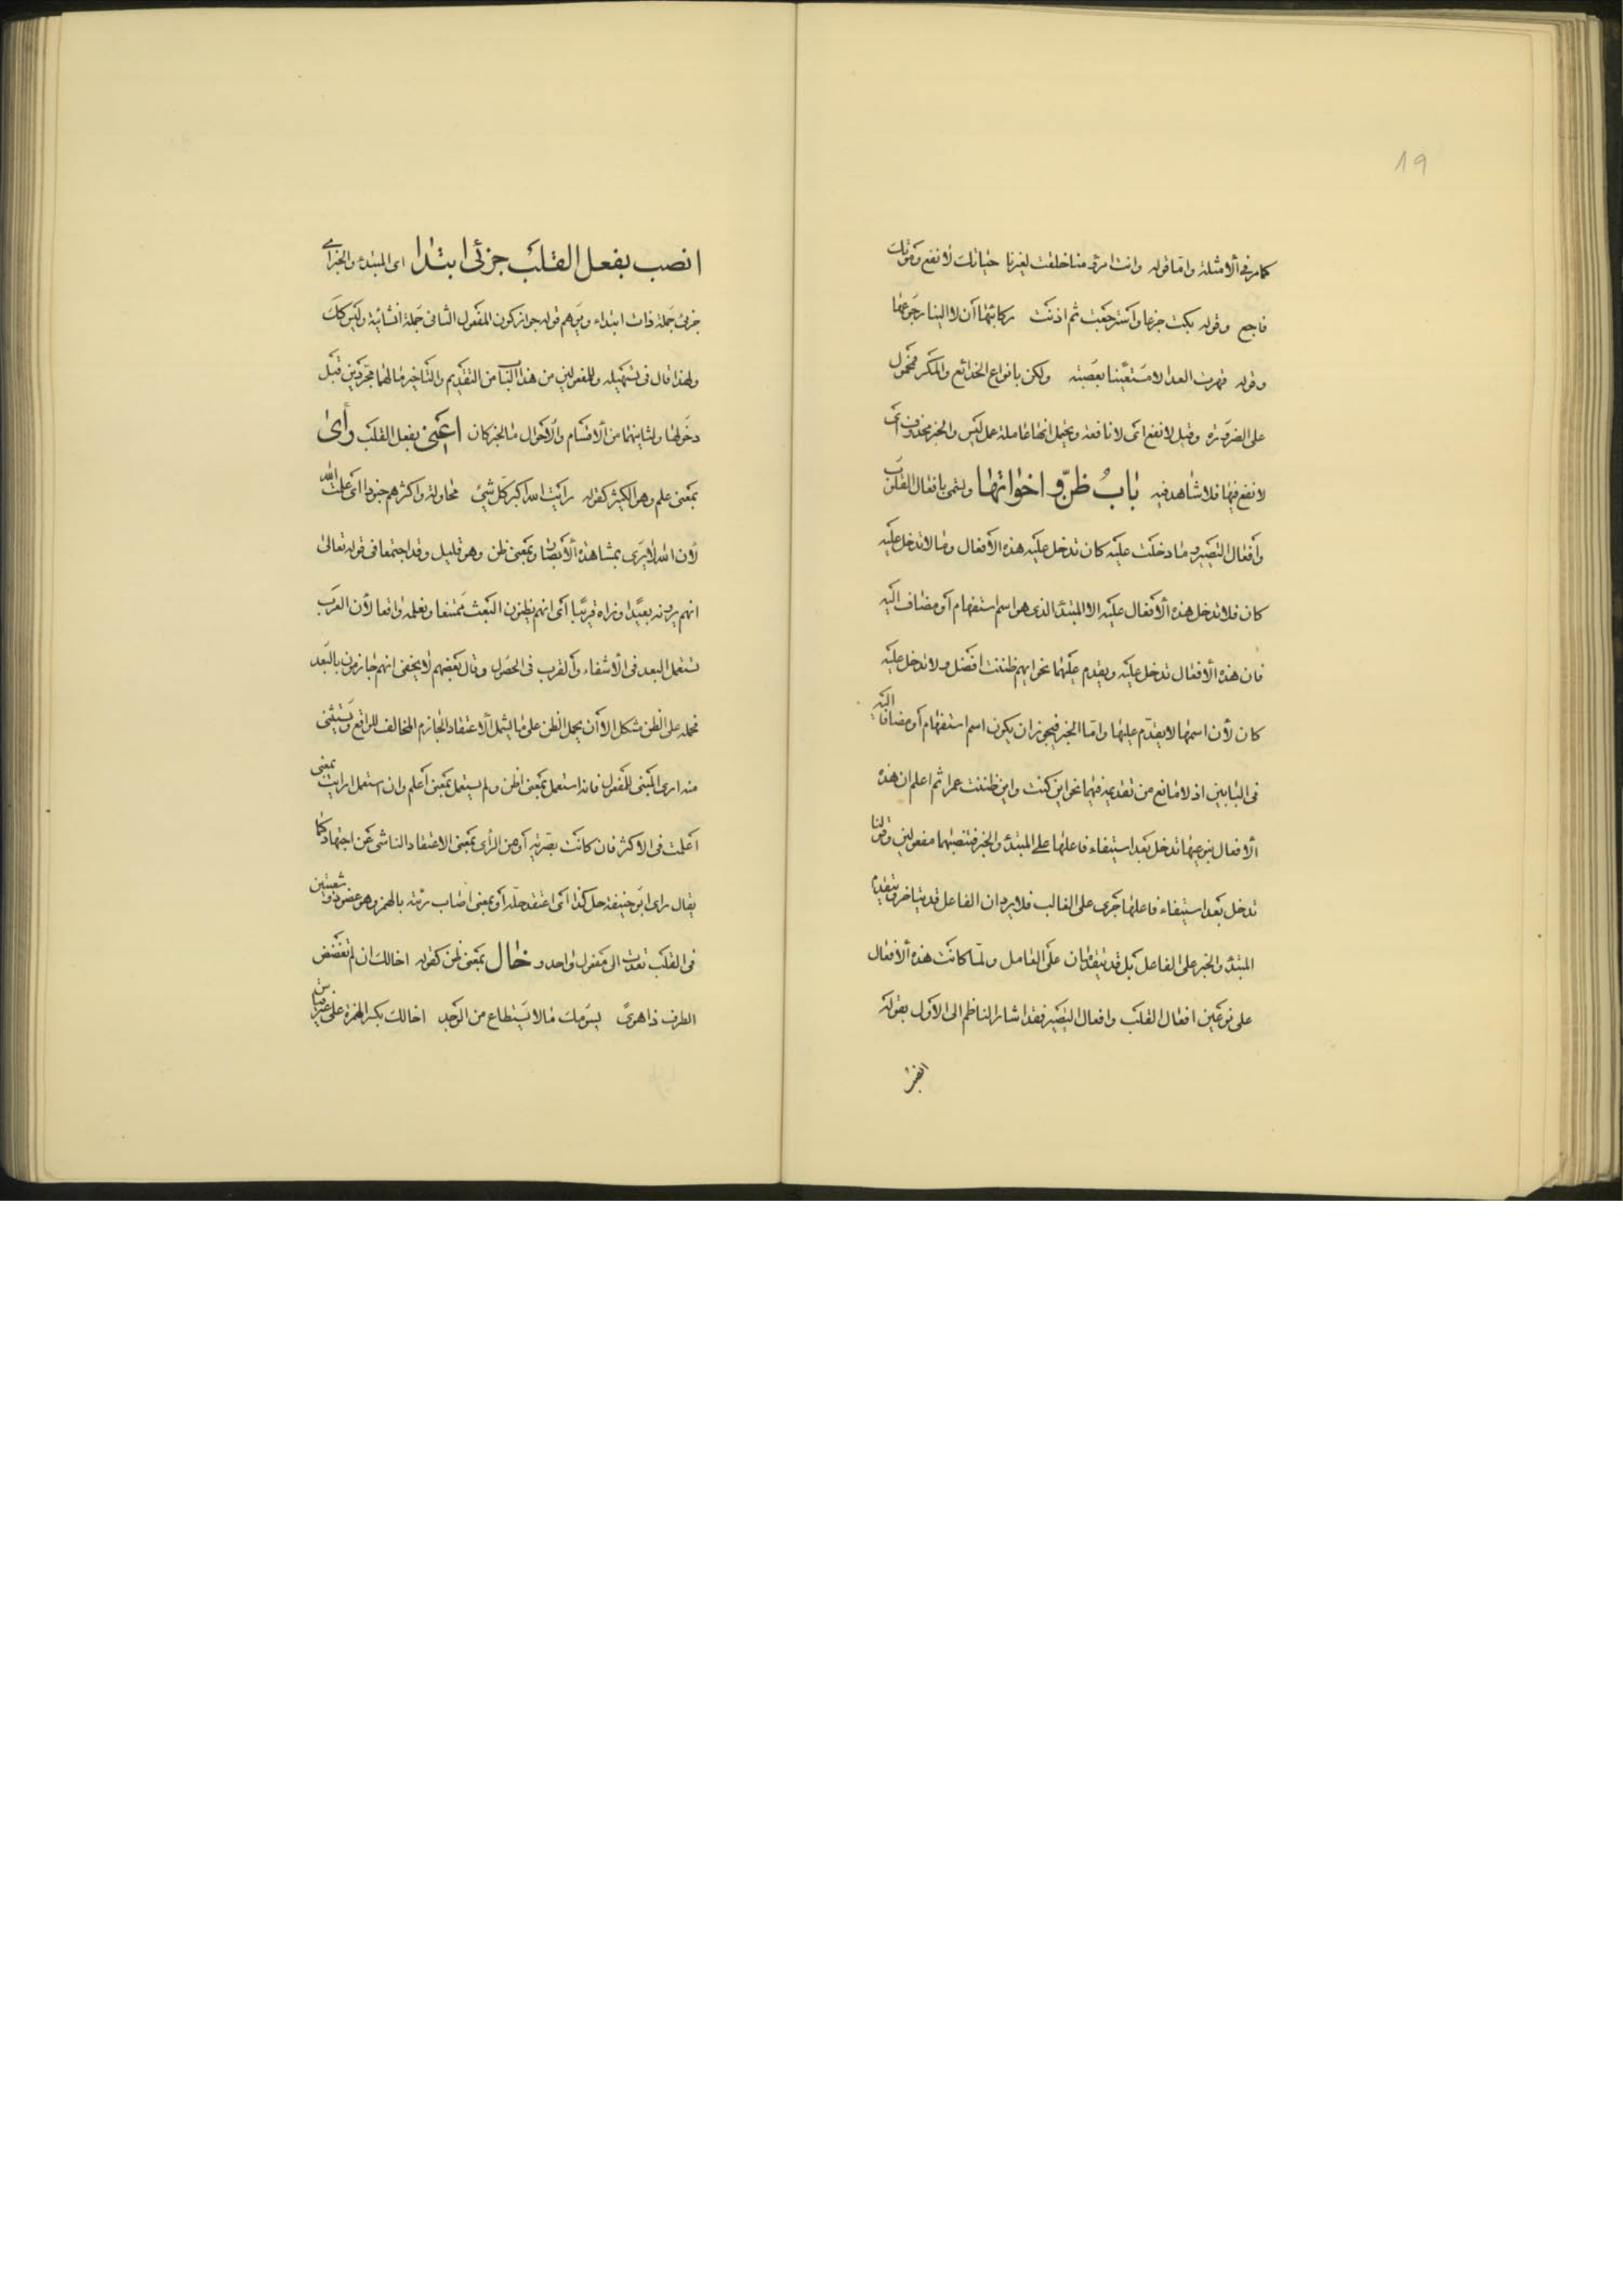 19
كما مر فى الأمثلة واما قوله وانت امرؤ منا خلقت لغيرنا حياتك لا نفع وموتك
فاجع وقوله بكت جزعا واسترجعت ثم اذنت ركائبها أن لا الينا رجوعها
وقوله قهرت العدا لا مستعينا بعصبة ولكن بانواع الخدائع والمكر فمحمول
على الضرورة وقيل لا نفع اى لا نافعة ويحتمل انها عاملة عمل ليس والخبر محذوف اى
لا نفع فيها فلا شاهد فيه باب ظن و اخواتها وتسمى بافعال القلوب
وافعال التصيير وما دخلت عليه كان تدخل عليه هذه الافعال وما لا تدخل عليه
كان فلا تدخل هذه الافعال عليه الا المبتدأ الذى هو اسم استفهام أو مضاف اليه
فان هذه الافعال تدخل عليه ويقدم عليهما نحو ايهم ظننت افضل ولا تدخل عليه
كان لأن اسمها لا يتقدم عليها واما الخبر فيجوز ان يكون اسم استفهام أو مضافا اليه
فى البابين اذ لا مانع من تقديمه فيهما نحو اين كنت واين ظننت عمرا ثم اعلم ان هذه
الافعال بنوعيها تدخل بعد استيفاء فاعلها على المبتدأ والخبر فتنصبهما مفعولين وقولنا
تدخل بعد استيفاء فاعلها جرى على الغالب فلا يرد ان الفاعل قد يتاخر ويتقدم
المبتدأ والخبر على الفاعل بل قد يتقدمان على العامل ولما كانت هذه الافعال
على نوعين افعال القلب وافعال التصيير فقد اشار الناظم الى الاول بقوله
انصب
انصب بفعل القلب جزئى ابتدا اى المبتدء والخبر اى
جزئى جملة ذات ابتداء ويوهم قوله جواز كون المفعول الثانى جملة انشائية وليس كك
ولهذا قال فى تسهيله وللمفعولين من هذا الباب من التقديم والتاخير ما لهما مجردين قبل
دخولها ولثانيهما من الاقسام والاحوال ما لخبر كان اعنى بفعل القلب رأى
بمعنى علم وهو الكثير كقوله رايت الله اكبر كل شئ محاولة واكثرهم جنودا اى علمت الله
لأن الله لا يرى بمشاهدة الأبصار وبمعنى ظن وهو قليل وقد اجتمعا فى قوله تعالى
انهم يرونه بعيدا ونراه قريبا اى انهم يظنون البعث ممتنعا ونعلمه واقعا لأن العرب
تستعمل البعد فى الانتفاء والقرب فى الحصول وقال بعضهم لا يخفى انهم جازمون بالبعد
فحمله على الظن مشكل الا أن يحمل الظن على ما يشمل الاعتقاد الجازم المخالف للواقع ويستثنى
منه ارى المبنى للمفعول فانه استعمل بمعنى اظن ولم يستعمل بمعنى أعلم وان استعمل اريت بمعنى
أعلمت فى الاكثر فان كانت بصرية أو من الرأى بمعنى الاعتقاد الناشى عن اجتهاد كما
يقال راى ابو حنيفة حل كذا اى اعتقد حله أو بمعنى اصاب رئته بالهمز وهو عضو ذو شعبتين
فى القلب تعدت الى مفعول واحد و خال بمعنى ظن كقوله اخالك ان لم تغضض
الطرف ذا هوى يسومك مالا يستطاع من الوجد اخالك بكسر الهمزة على غير قياس